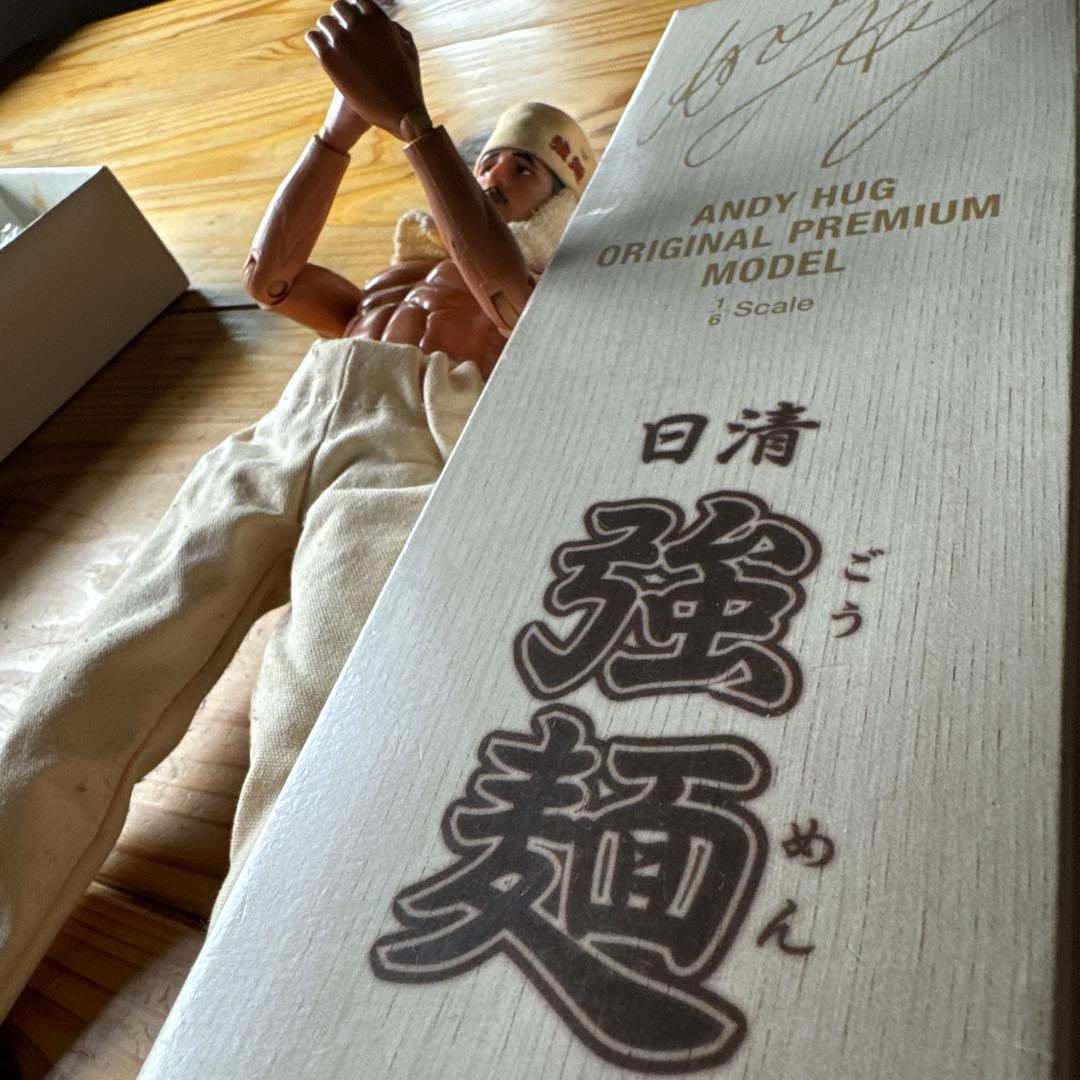 ANDY HUG
ORIGINAL PREMIUM
MODEL
1/6 Scale
日清
強麺
ごうめん